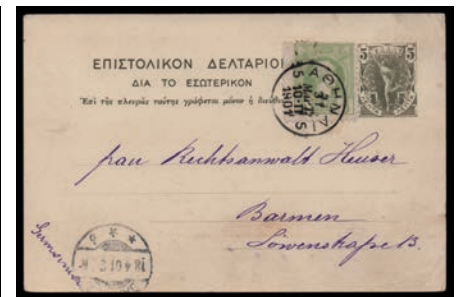 ΕΠΙΣΤΟΛΙΚΟΝ ΔΕΛΤΑΡΙΟΝ
ΔΙΑ ΤΟ ΕΣΩΤΕΡΙΚΟΝ
Ἐπὶ τῆς πλευρᾶς ταύτης γράφεται μόνον ἡ
5 5
ΑΘΗΝΑΙ 5
31
10-11
1901
5
Frau Rechtsanwalt Heuser
Barmen
Löwenstraße 13.
Germania